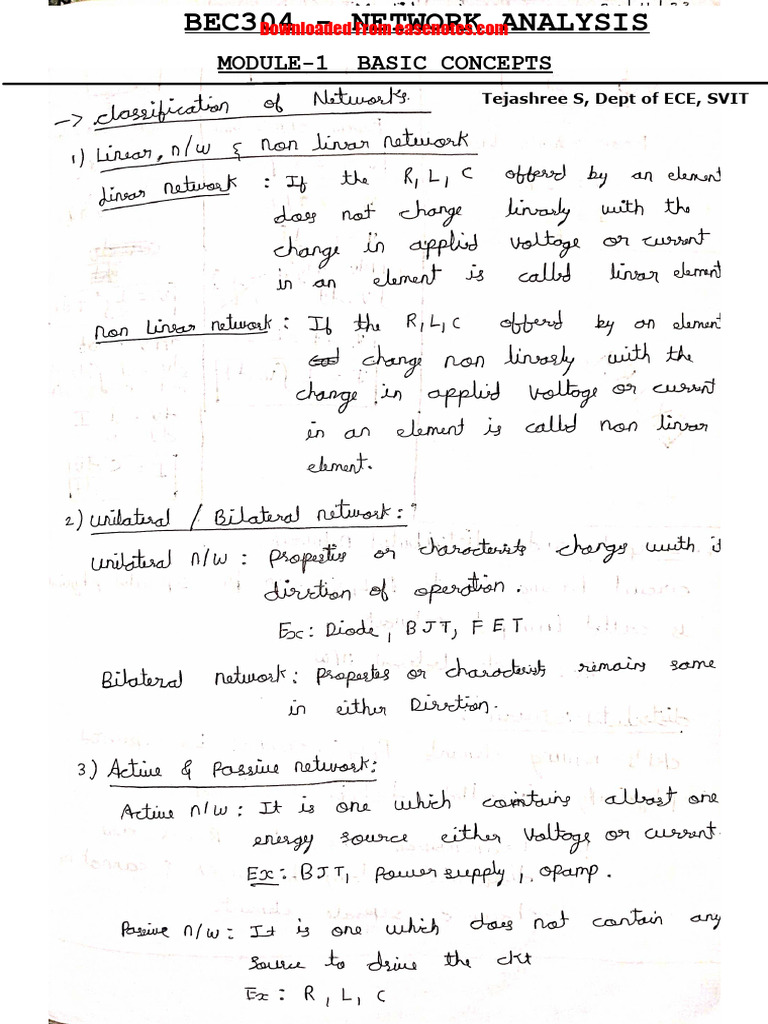 BEC304 - NETWORK ANALYSIS
Downloaded from easenotes.com
MODULE-1 BASIC CONCEPTS
Tejashree S, Dept of ECE, SVIT
-> Classification of Networks.
1) Linear, n/w & non linear network
Linear network : If the R, L, C offered by an element
does not change linearly with the
change in applied voltage or current
in an element is called linear element
non linear network : If the R, L, C offered by an element
change non linearly with the
change in applied voltage or current
in an element is called non linear
element.
2) unilateral / Bilateral network :
unilateral n/w : properties or characterists change with
direction of operation.
Ex : Diode, BJT, FET
Bilateral network : properties or characterists remains same
in either Direction.
3) Active & passive network :
Active n/w : It is one which contains atleast one
energy source either voltage or current.
Ex : BJT, power supply, opamp.
Passive n/w : It is one which does not contain any
source to drive the ckt
Ex : R, L, C